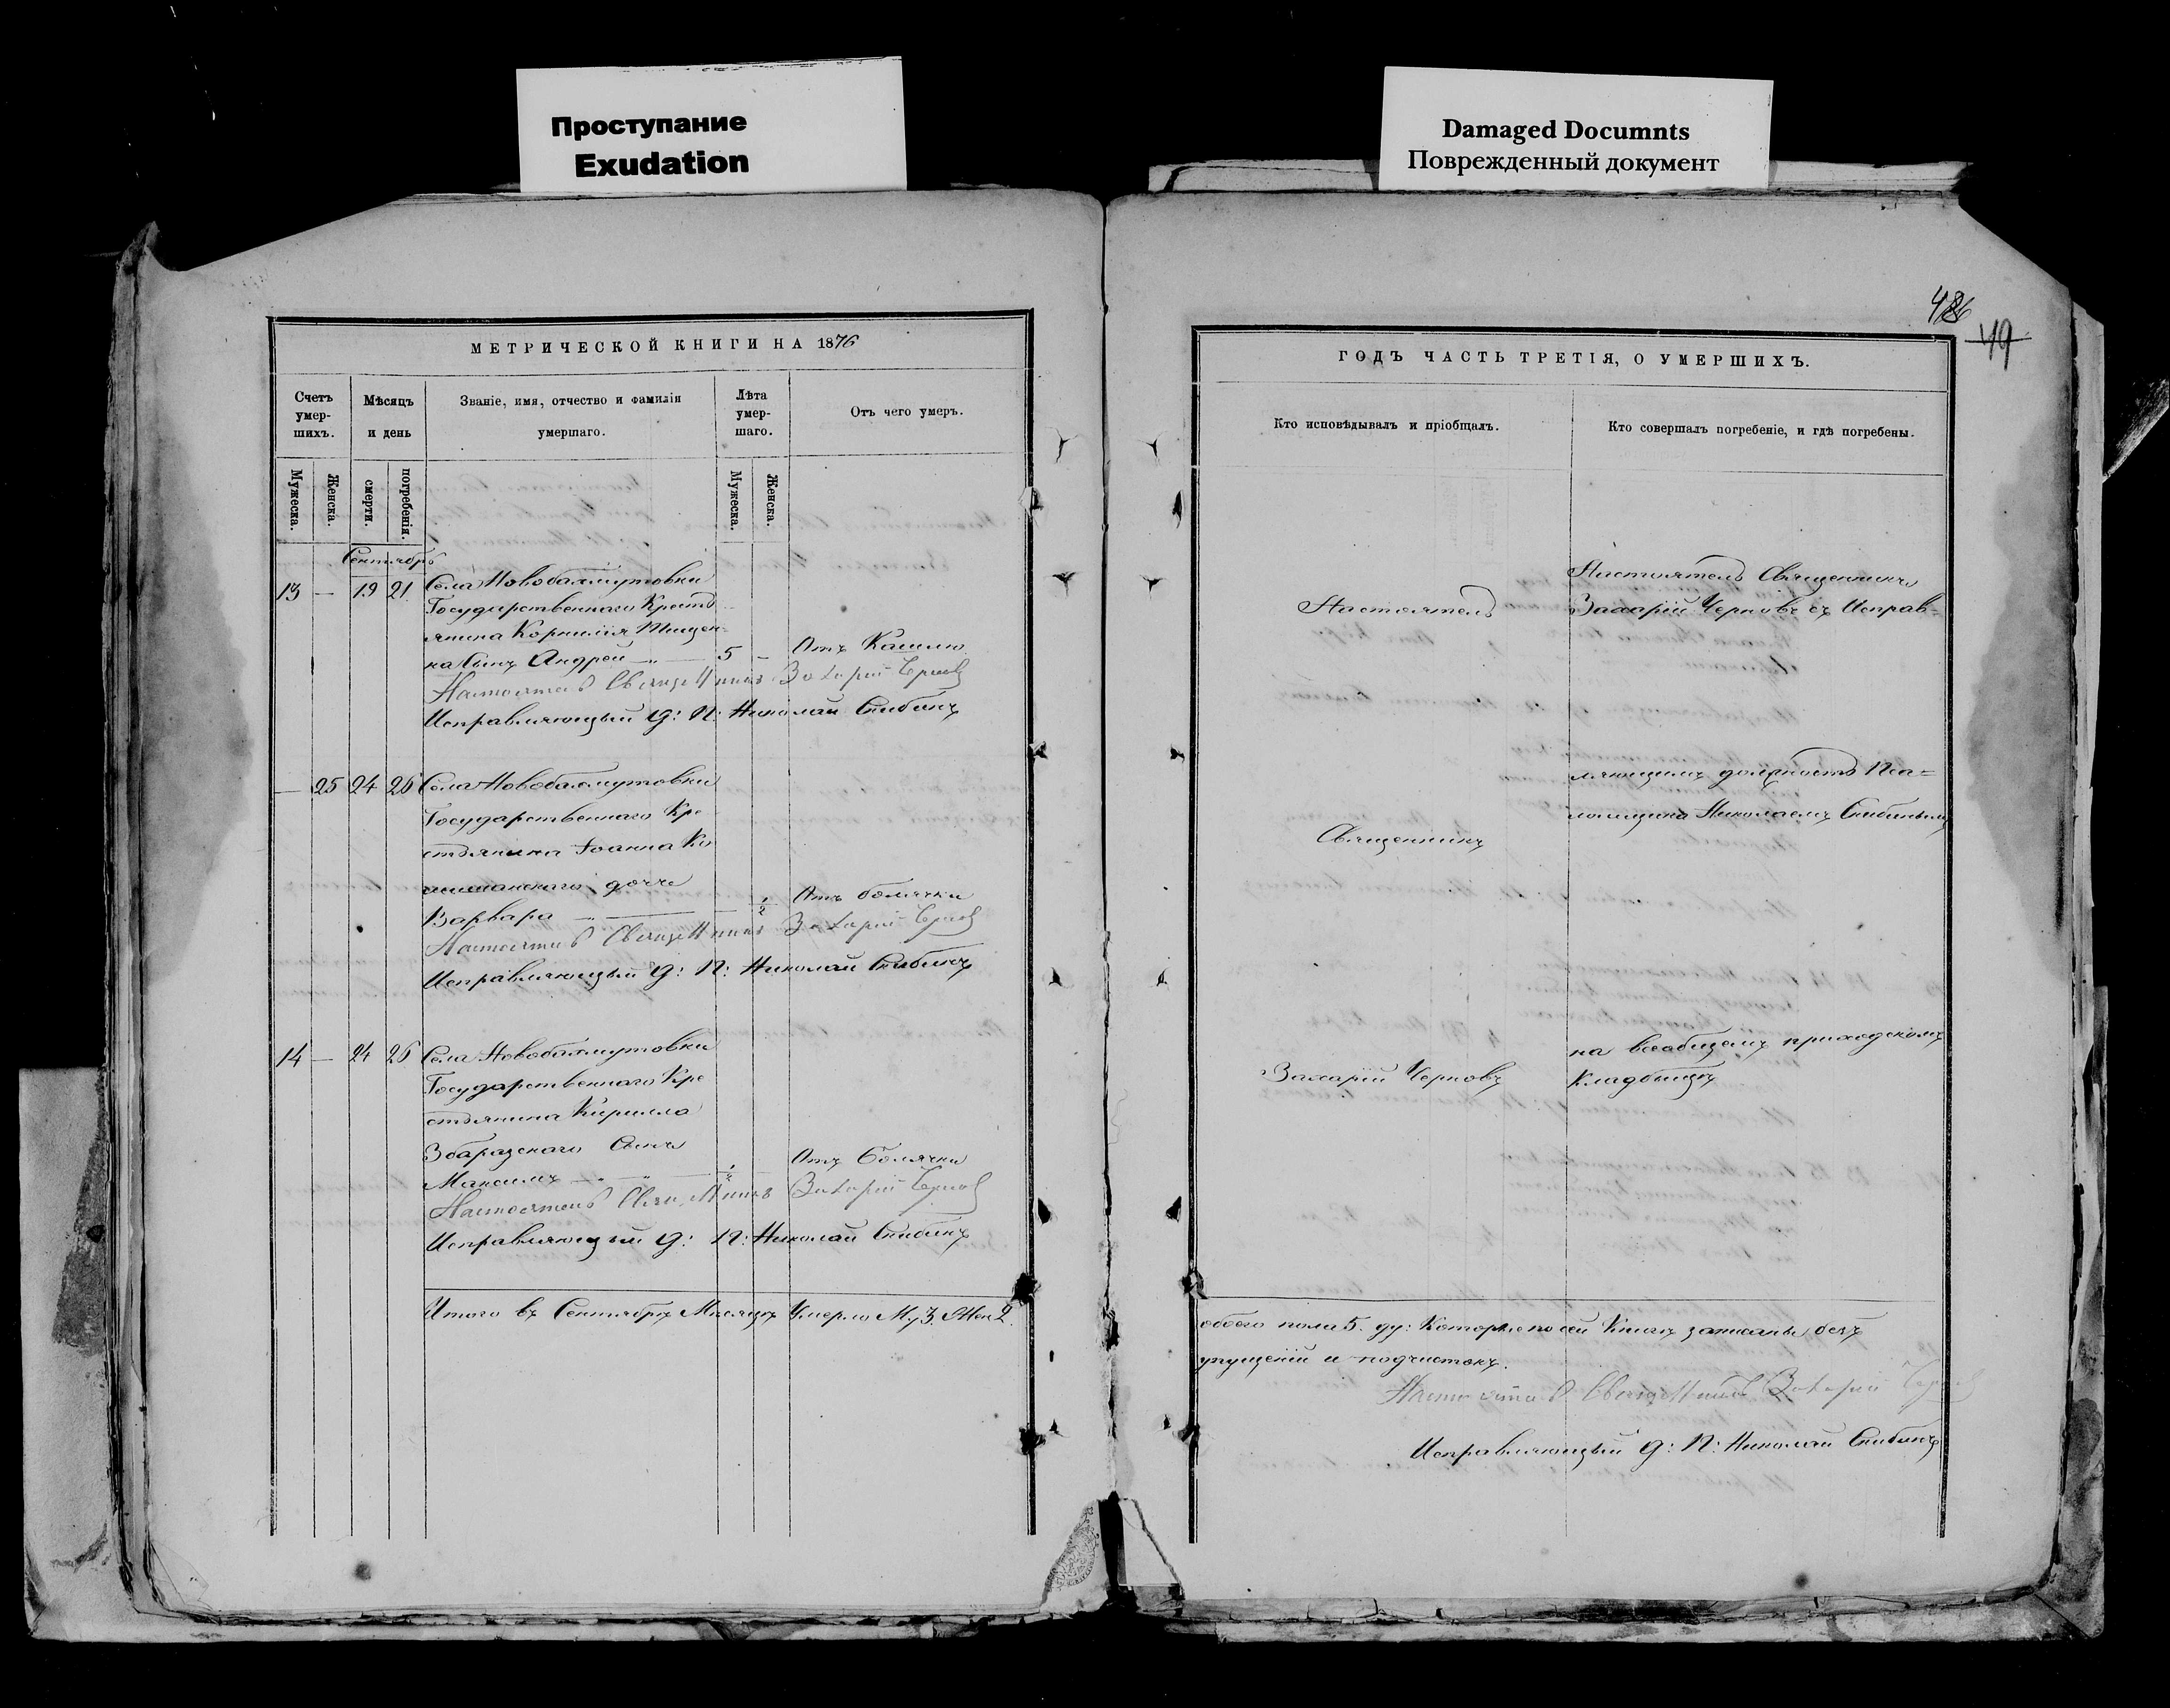 Проступание
Exudation
Damaged Documnts
Поврежденный документ
МЕТРИЧЕСКОЙ КНИГИ НА 1876
Счетъ умер-шихъ.
Мѣсяцъ и день
Званіе, имя, отчество и фамилія умершаго.
Лѣта умер-шаго.
Отъ чего умеръ.
Мужеска.
Женска.
смерти.
погребенія.
Мужеска.
Женска.
Сентябрь
13 — 19 21 Села Новобахмутовки
Государственнаго Кресть
янина Корнилія Тищен-
ка Сынъ Андрей — 5 — Отъ Кашлю
Настоятель Священникъ Захарій Черновъ
Исправляющій д: П: Николай Скибинъ
— 25 24 26 Села Новобахмутовки
Государственнаго Кре
стьянина Іоанна Ко
дочь
Варвара — 1/2 Отъ болячки
Настоятель Священникъ Захарій Черновъ
Исправляющій д: П: Николай Скибинъ
14 — 24 26 Села Новобахмутовки
Государственнаго Кре
стьянина Кирилла
Збаразскаго Сынъ
Максимъ — 1/2 Отъ Болячки
Настоятель Священникъ Захарій Черновъ
Исправляющій д: П: Николай Скибинъ
Итого въ Сентябрѣ Мѣсяцѣ Умерло Му 3. Жен 2.
486
49
ГОДЪ ЧАСТЬ ТРЕТІЯ, О УМЕРШИХЪ.
Кто исповѣдывалъ и пріобщалъ.
Кто совершалъ погребеніе, и гдѣ погребены.
Настоятель
Священникъ
Захарій Черновъ
Настоятель Священникъ
Захарій Черновъ съ Исправ-
ляющимъ должность Пса=
ломщика Николаемъ Скибинымъ
на всеобщемъ приходскомъ
Кладбищѣ
обоего пола 5. ду: Которые по сей Книгѣ записаны безъ
упущеній и подчистокъ.
Настоятель Священникъ Захарій Черновъ
Исправляющій д: П: Николай Скибинъ